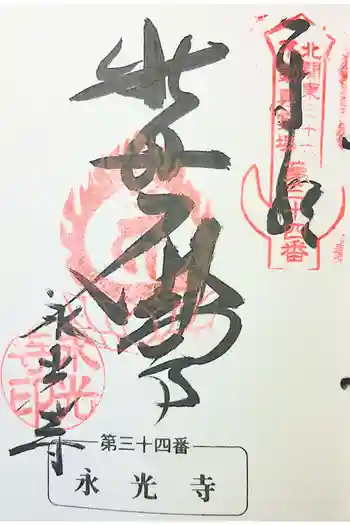 北関東三十六
不動尊霊場
第三十四番
不動尊
永光寺
永光寺印
第三十四番
永光寺